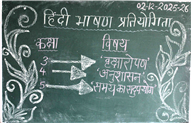 02-12-2025-26
हिंदी भाषण प्रतियोगिता
कक्षा विषय
3 वृक्षारोपण
4 अनुशासन
5 समय का सदुपयोग